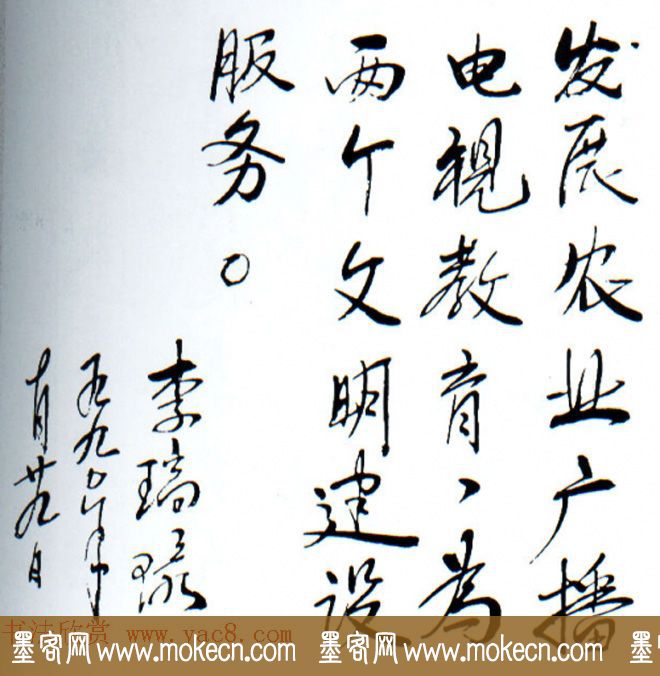 发展农业广播
电视教育、为
两个文明建设
服务。
李瑞环
一九九〇年
十月廿九日
书法欣赏 www.yac8.com
墨客网 www.mokecn.com 墨客网 www.mokecn.com